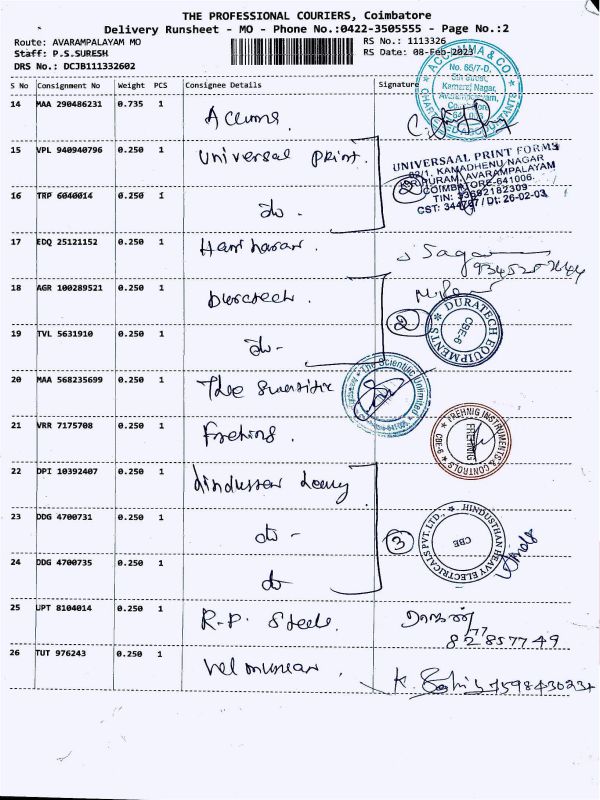 THE PROFESSIONAL COURIERS, Coimbatore
Delivery Runsheet - MO - Phone No.:0422-3505555 - Page No.:2
Route: AVARAMPALAYAM MO
RS No.: 1113326
Staff: P.S.SURESH
RS Date: 08-Feb-2023
DRS No.: DCJB111332602
S No Consignment No Weight PCS Consignee Details Signature
14 MAA 290486231 0.735 1
ACCUMMA & CO
No. 65/7-D,
Kamaraj Nagar,
CHARTERED ACCOUNTANTS
15 VPL 940940796 0.250 1 Universal print.
UNIVERSAAL PRINT FORMS
62/1, KAMADHENU NAGAR
PURAM, AVARAMPALAYAM
COIMBATORE-641006.
TIN: 33692182309
CST: 344767 / Dt: 26-02-03
2
16 TRP 6040014 0.250 1 do -
17 EDQ 25121152 0.250 1 Hariharan.
18 AGR 100289521 0.250 1
2
DURATECH EQUIPMENTS
CBE-6
19 TVL 5631910 0.250 1 do -
20 MAA 568235699 0.250 1 The
The Scientific Unlimited
21 VRR 7175708 0.250 1 Frehing.
FREHNIG INSTRUMENTS & CONTROLS
FREHNIG
CBE-6
22 DPI 10392407 0.250 1 hindustan heavy
23 DDG 4700731 0.250 1 do -
3
HINDUSTHAN HEAVY ELECTRICALS PVT. LTD.,
CBE
24 DDG 4700735 0.250 1 do
25 UPT 8104014 0.250 1 R.P. Steels.
26 TUT 976243 0.250 1 Vel murugan.